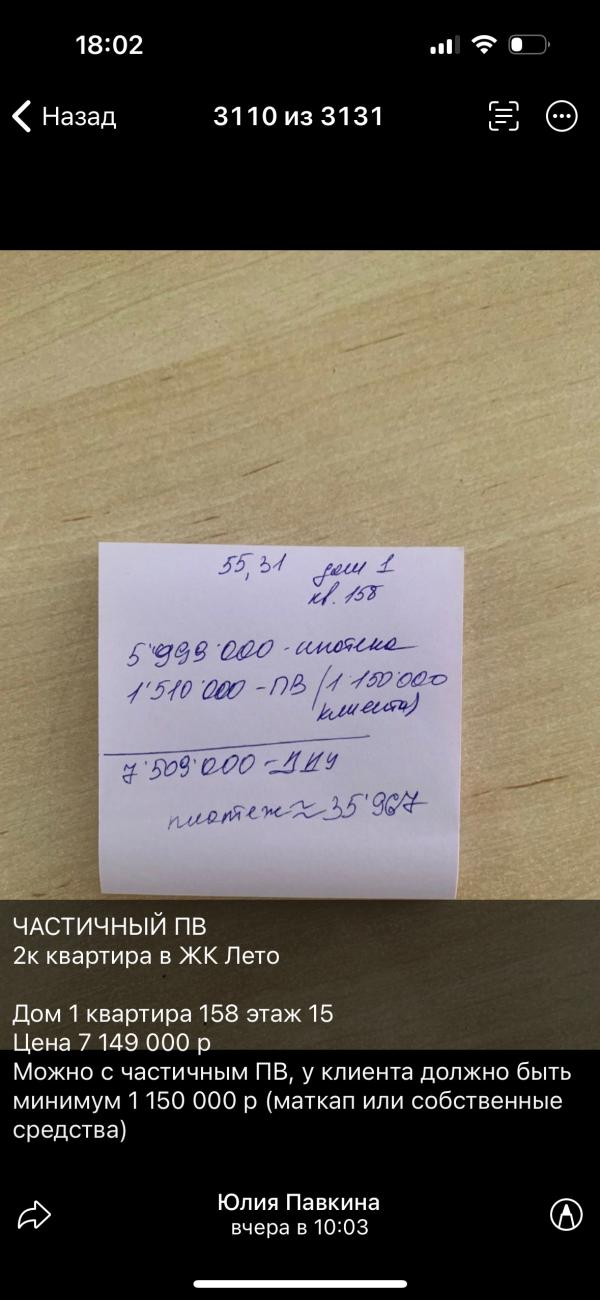 18:02
Назад
3110 из 3131
55,31 дом 1
кв. 158
5'999'000 - ипотека
1'510'000 - ПВ (1'150'000
клиента)
7'509'000 - ДДУ
платеж ≈ 35'967
ЧАСТИЧНЫЙ ПВ
2к квартира в ЖК Лето
Дом 1 квартира 158 этаж 15
Цена 7 149 000 р
Можно с частичным ПВ, у клиента должно быть
минимум 1 150 000 р (маткап или собственные
средства)
Юлия Павкина
вчера в 10:03